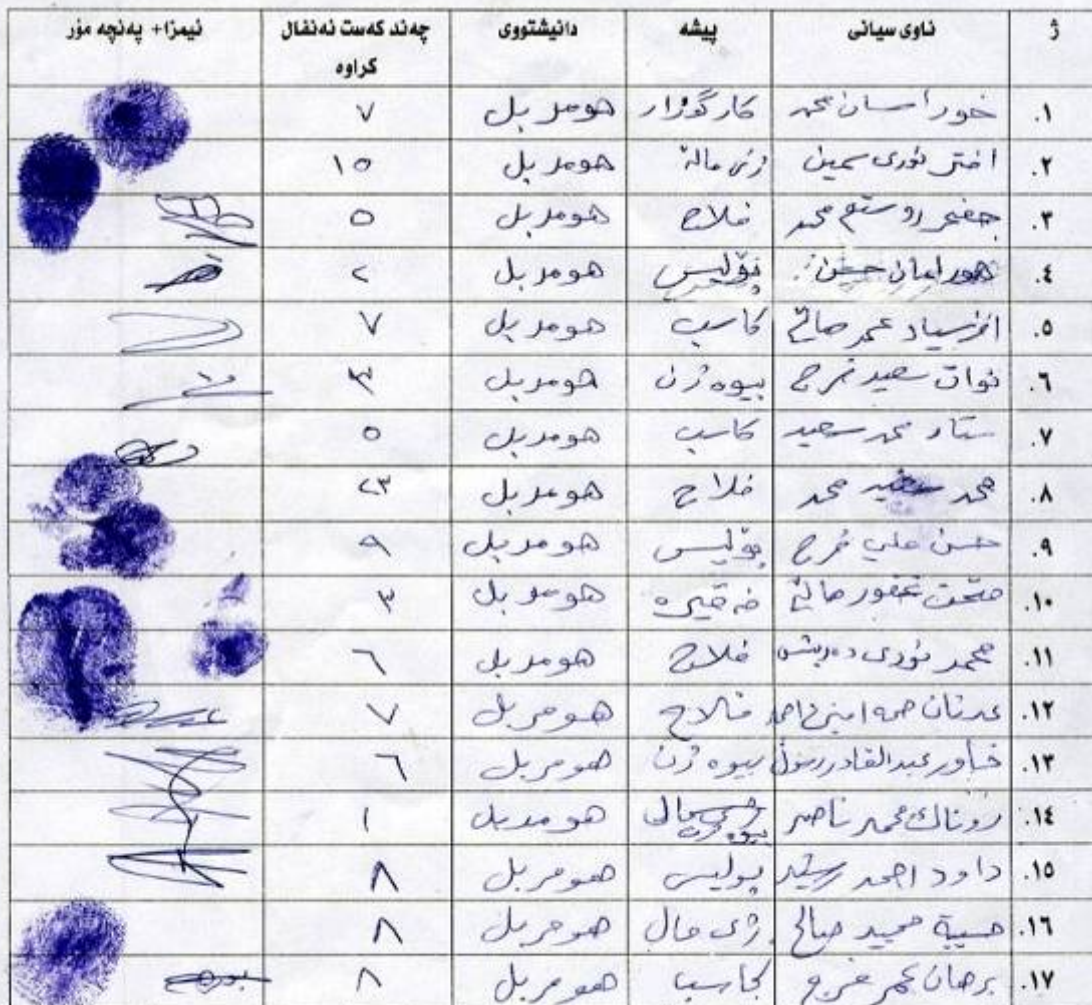 ژ ناوی سیانی پیشه دانیشتووی چەند کەست ئەنفال نیمزا+ پەنجە مۆر
کراوه
١. خوراسان محمد کارگوزار هومربل ٧
٢. اختر نوری سمین ژنی ماڵە هومربل ١٥
٣. جعفر روستم محمد فلاح هومربل ٥
٤. هورامان حسن پۆلیس هومربل ٢
٥. عمر صالح کاسب هومربل ٧
٦. سعید فرج بیوەژن هومربل ٣
٧. ستار محمد سعید کاسب هومربل ٥
٨. محمد سعید محمد فلاح هومربل ٢٣
٩. حسن علي فرج پۆلیس هومربل ٩
١٠. غفور صالح هومربل ٣
١١. محمد نوری دەرویش فلاح هومربل ٦
١٢. عدنان حمە امین احمد فلاح هومربل ٧
١٣. خاور عبدالقادر رسول بیوەژن هومربل ٦
١٤. روناك محمد ناصر هومربل ١
١٥. داود احمد رشید پولیس هومربل ٨
١٦. حمید صالح ژنی مال هومربل ٨
١٧. برهان عمر فرج کاسب هومربل ٨